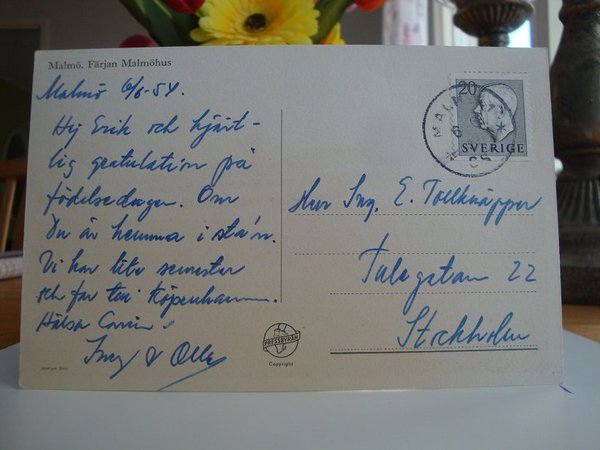 Malmö. Färjan Malmöhus
Malmö 6/6-54.
Hej Erik och hjärt-
lig gratulation på
födelsedagen. Om
Du är hemma i sta'n.
Vi har lite semester
och far till Köpenhamn.
Hälsa
Inez & Olle
20
SVERIGE
MAL
6
Herr Ing. E. Tollknäpper
Tulegatan 22
Stockholm
PRESSBYRÅN
Copyright